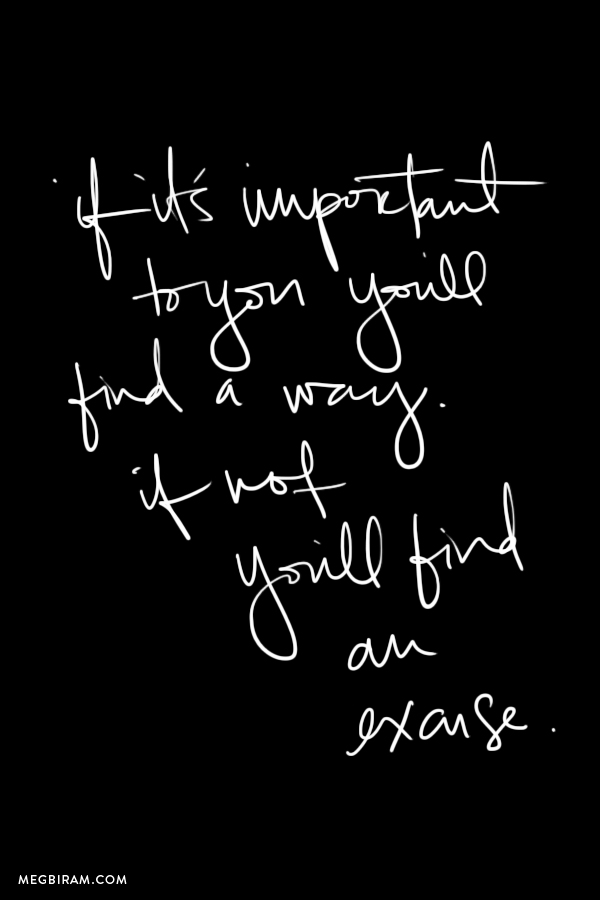 if it's important
to you you'll
find a way.
if not
you'll find
an
excuse.
MEGBIRAM.COM